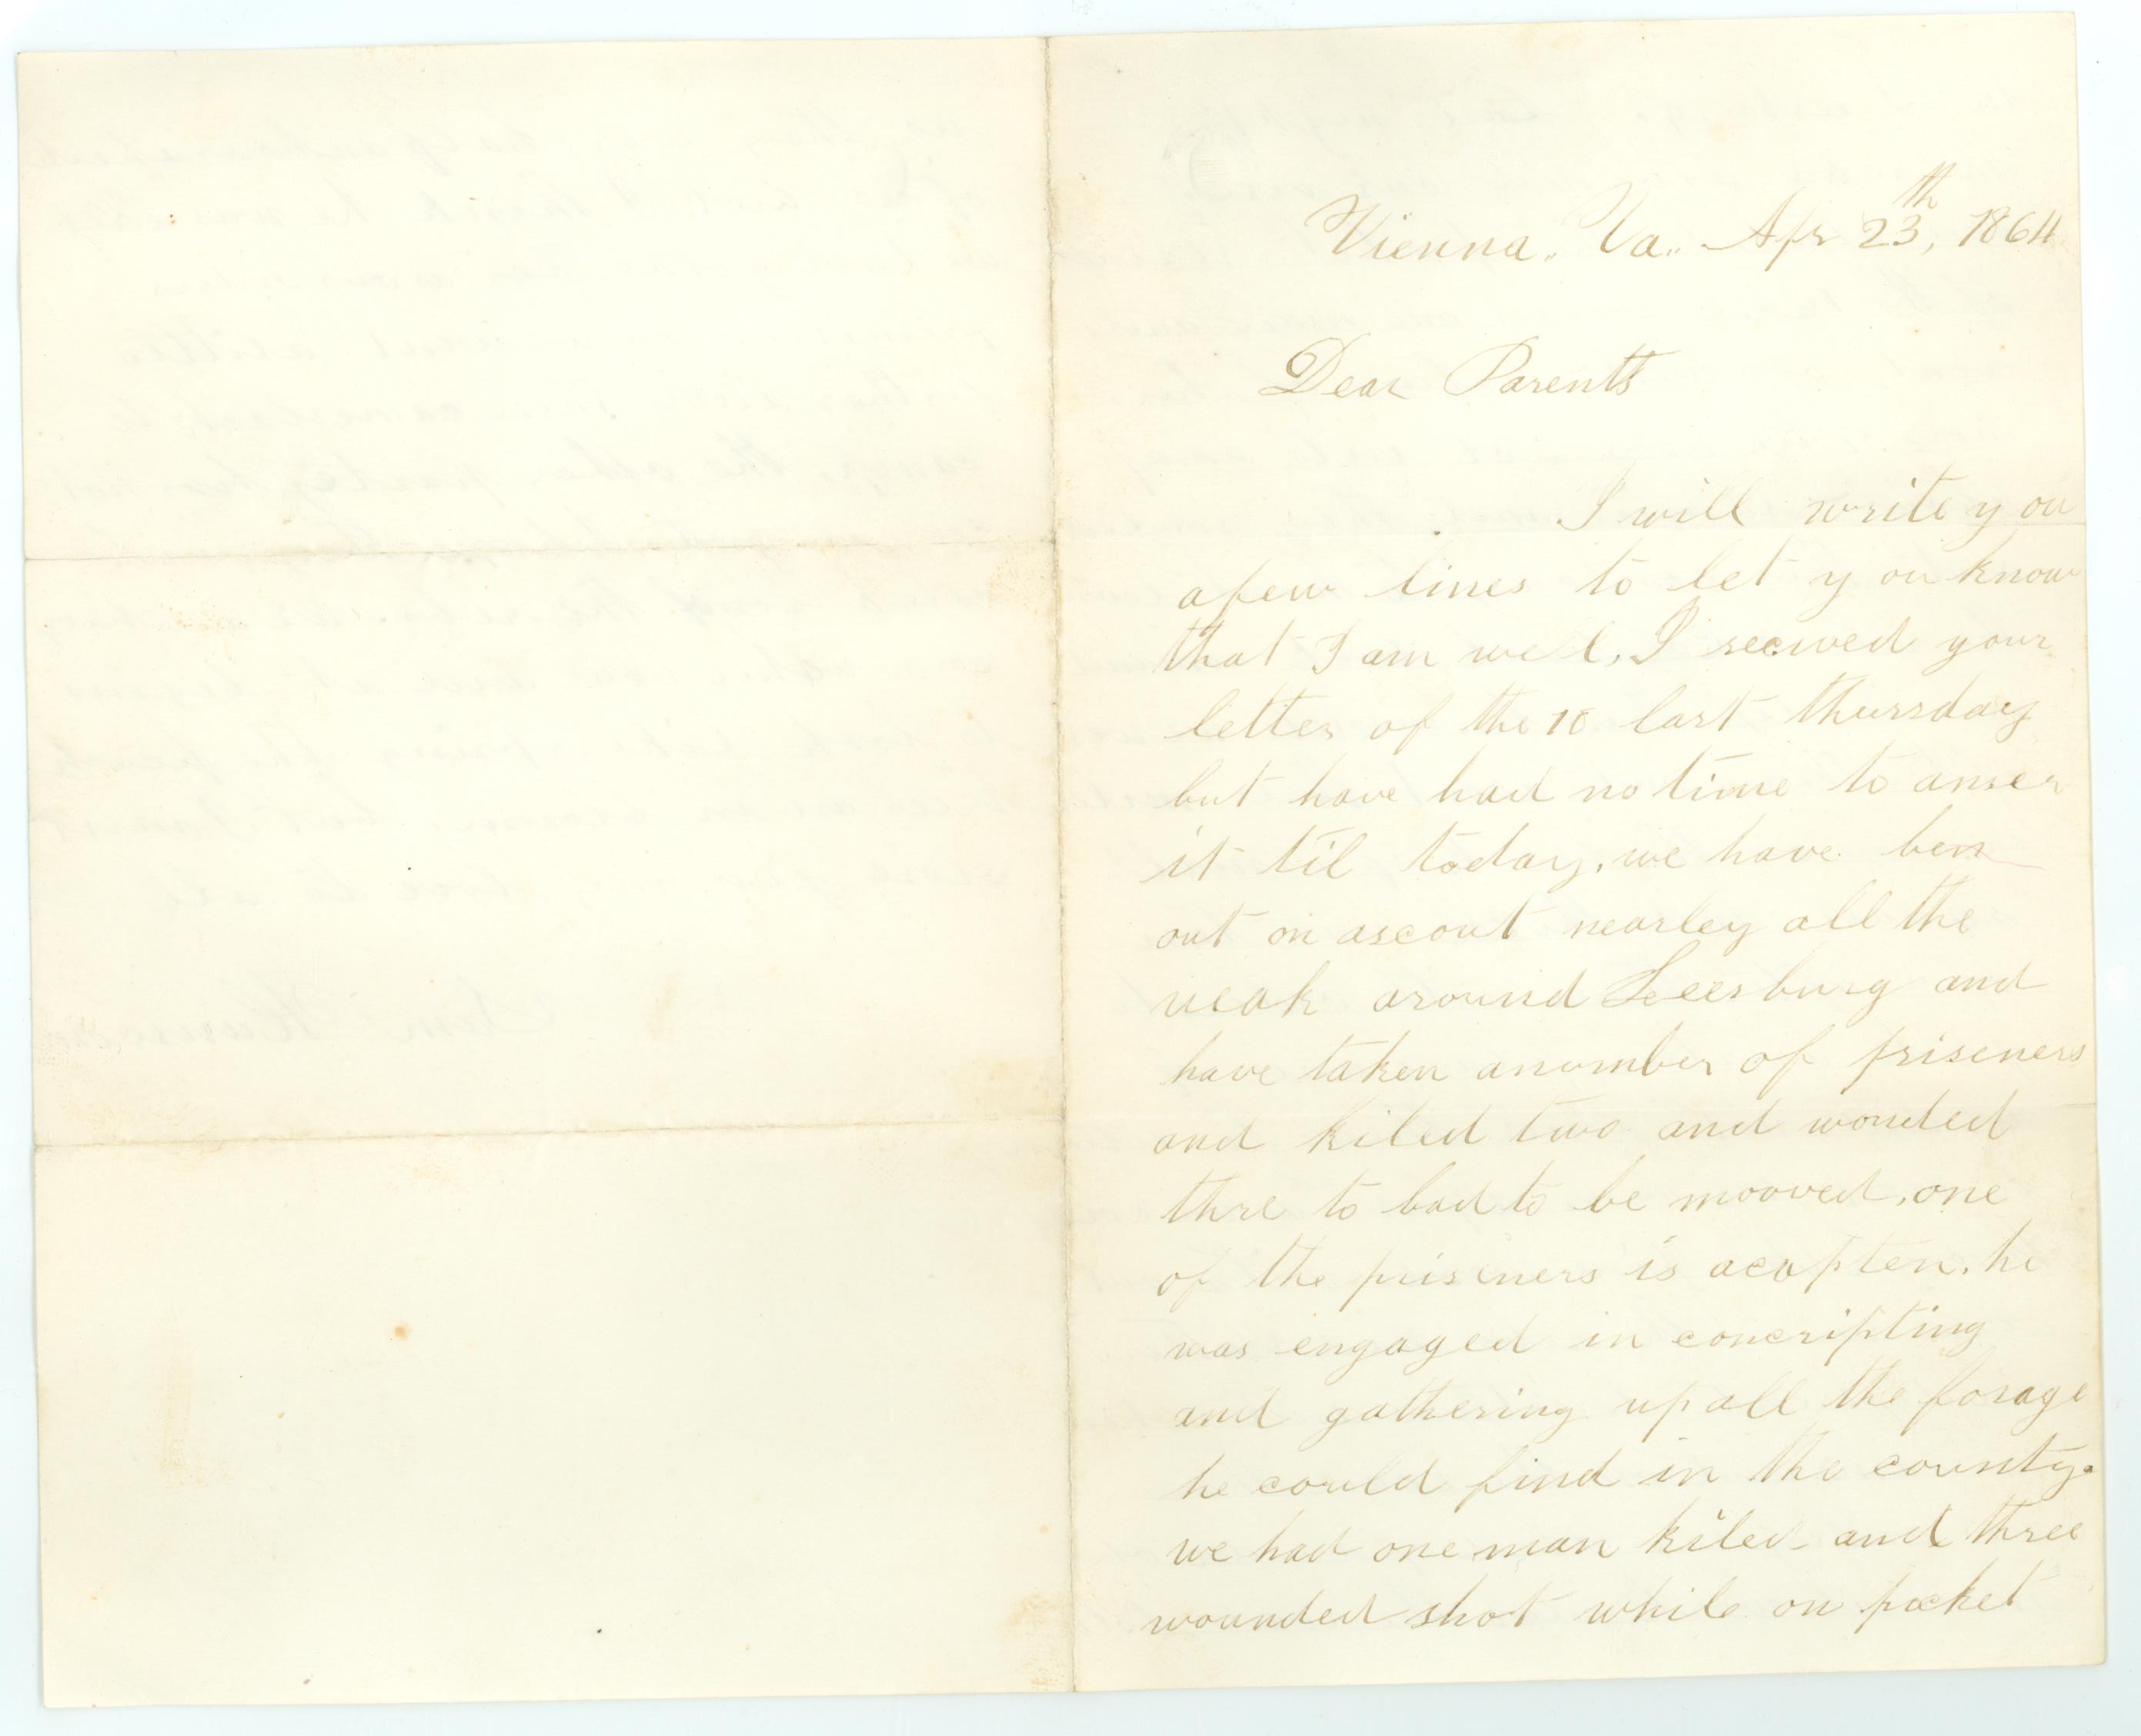 Vienna, Va. Apr 23th, 1864
Dear Parents
I will write you
a few lines to let you know
that I am well, I recived your
letter of the 10 last thursday
but have had no time to anser
it til today, we have ben
out on a scout nearley all the
weak around Leesburg and
have taken a number of priseners
and kiled two and wonded
thre to bad to be mooved, one
of the priseners is a capten, he
was engaged in concripting
and gathering up all the forage
he could find in the county.
we had one man kiled and three
wounded shot while on picket